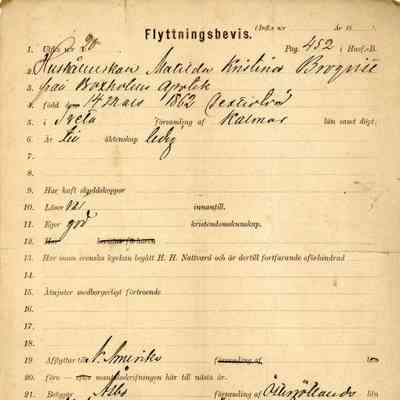 ( Infl:s n:r År 18
Flyttningsbevis.
1. Utfl:s n:r 20 Pag. 452 i Husf.-B.
2. Huskällerskan Matilda Kristina
3. från Boxholms Apotek
4. född den 14 Mars 1862
5. i församling af Kalmar län samt döpt;
6. Är till äktenskap ledig
7.
8.
9. Har haft skyddskoppor
10. Läser innantill.
11. Eger god kristendomskunskap.
12. Har
13. Har inom svenska kyrkan begått H. H. Nattvard och är dertill fortfarande oförhindrad
14.
15. Åtnjuter medborgerligt förtroende
16.
17.
18.
19. Afflyttar till N. Amerika församling af län
20. före — efter mantalsskrifningen här till nästa år.
21. Betygar Åsbo församling af Östergötlands län